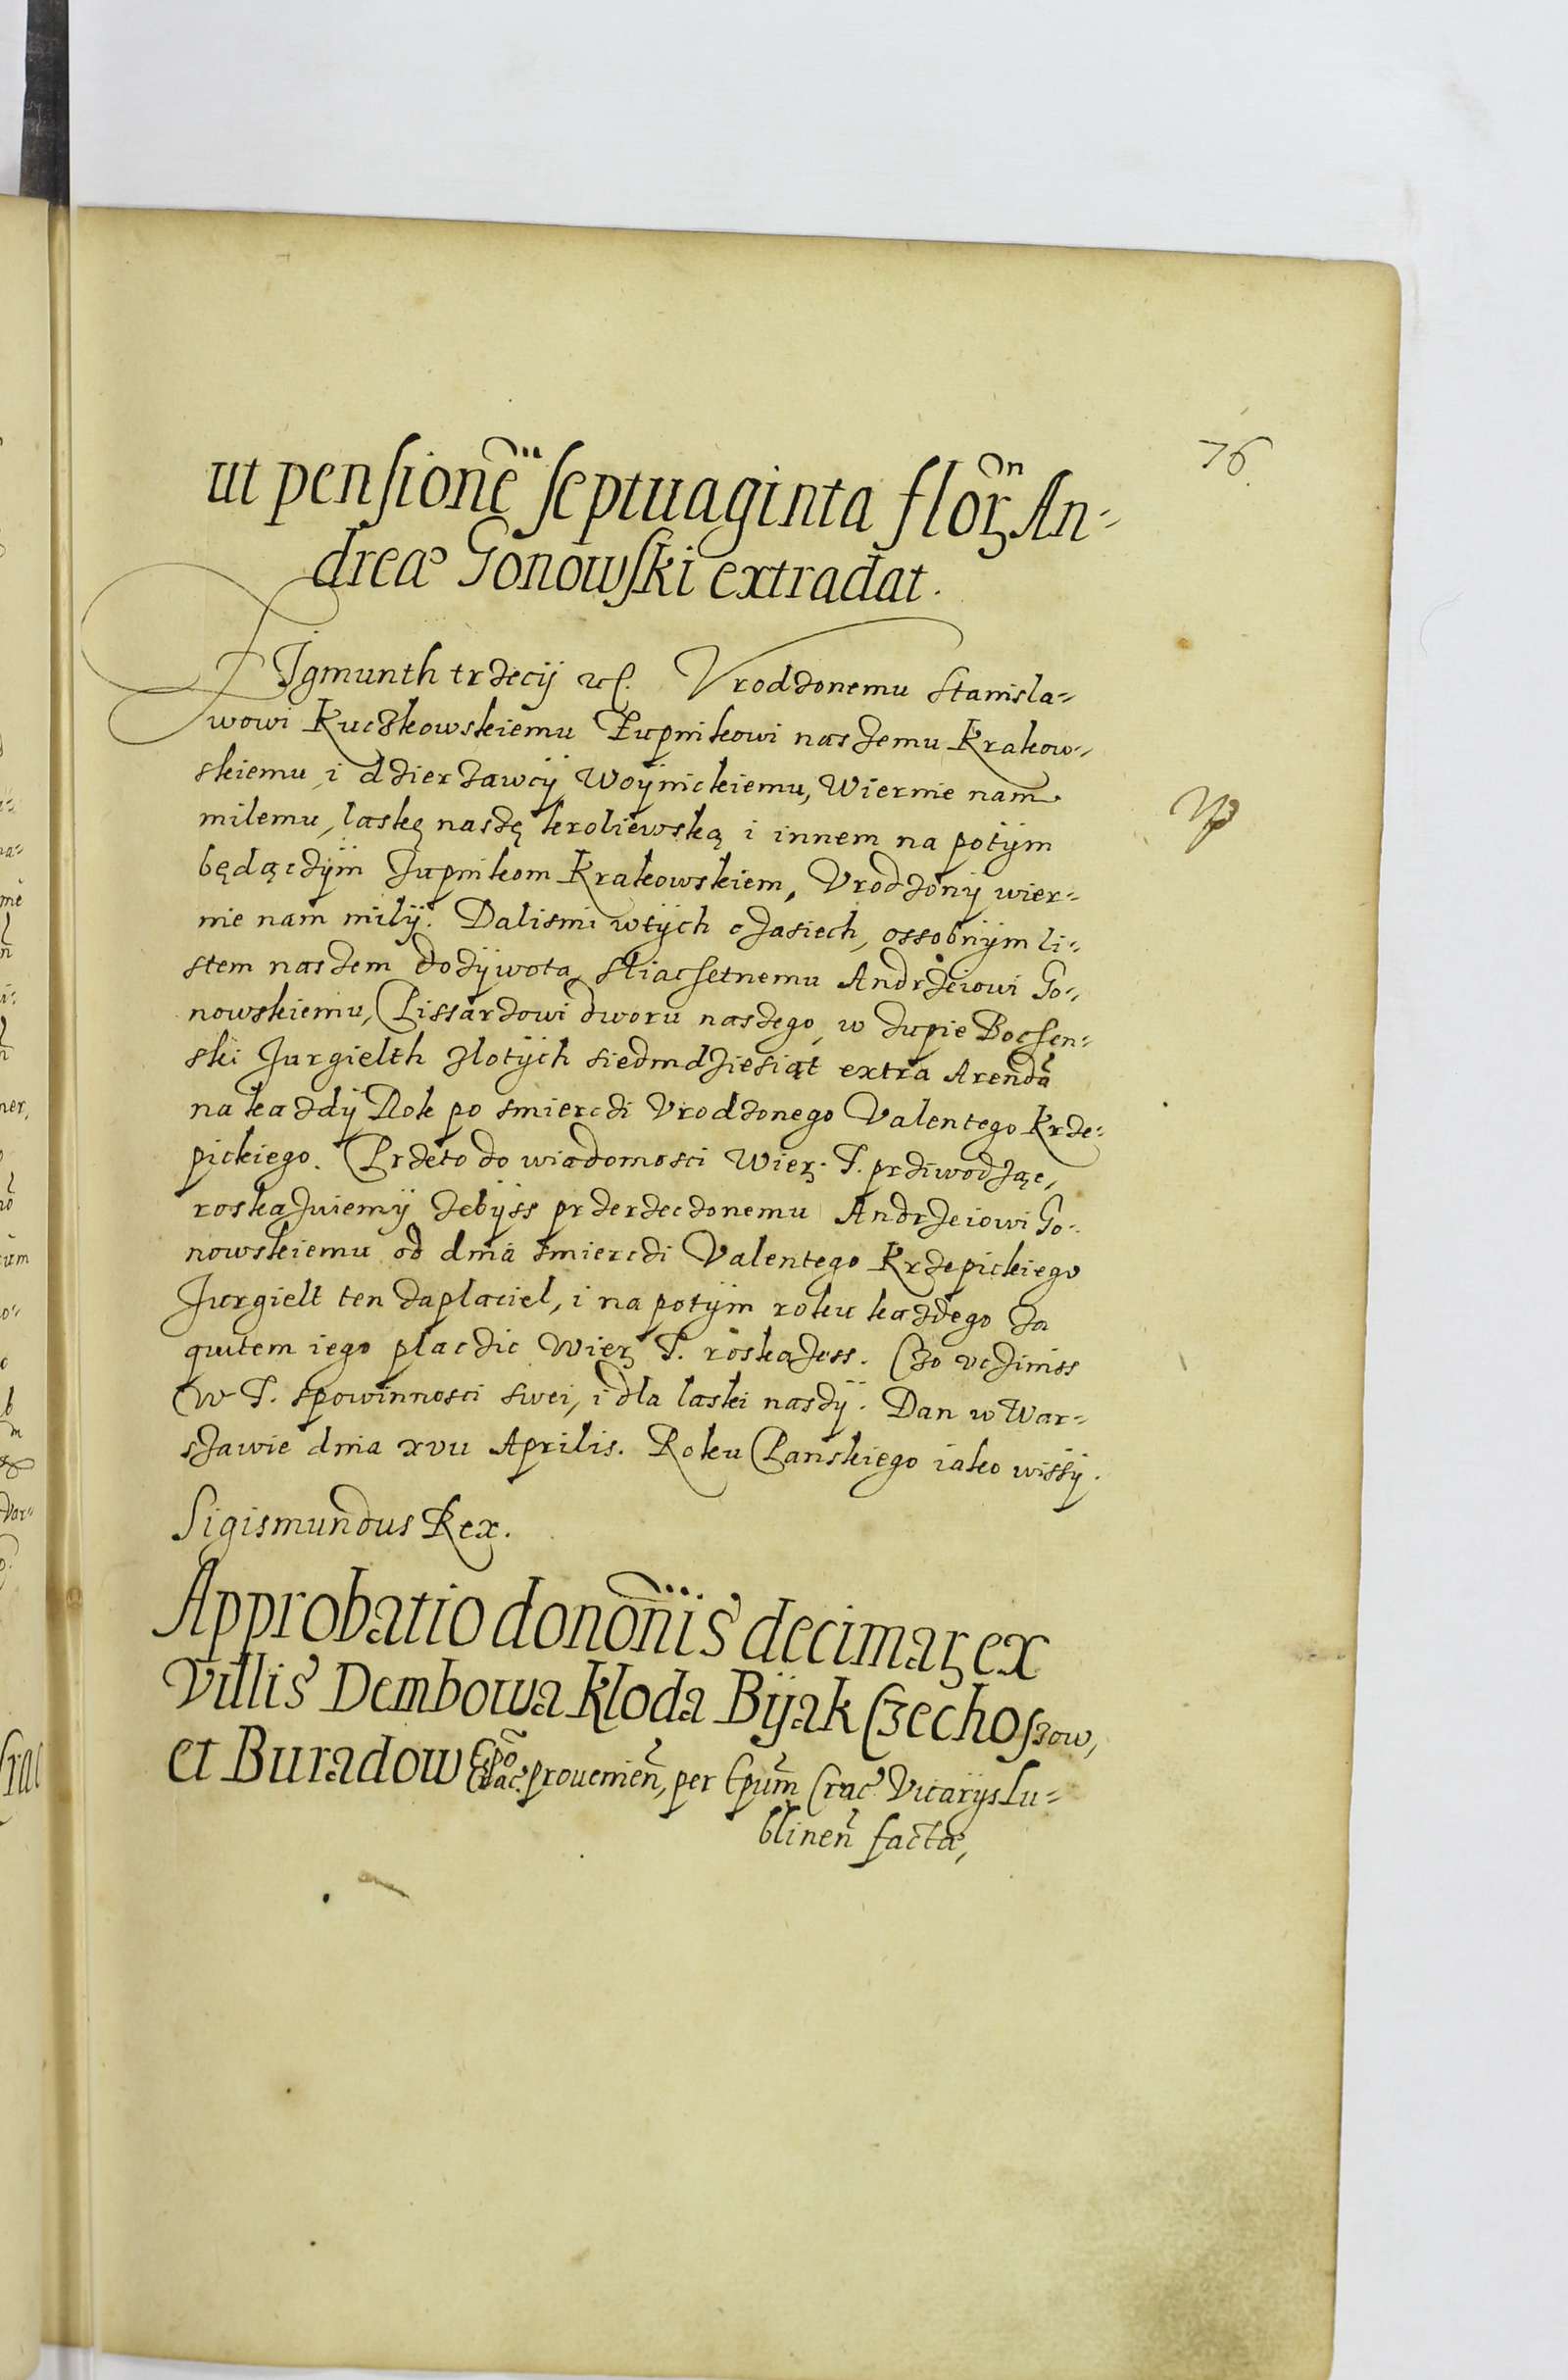 76.
ut pensionē septuaginta florꝝ An-
dreæ Gonowski extradat.
Zigmunth trzecij etc. Vrodzonemu Stanisla-
wowi Kuczkowskiemu Zupnikowi naszemu Krakow-
skiemu, i dzierzawcÿ Woÿnickiemu, Wiernie nam
milemu, laskę naszę kroliewską i innem na potÿm
będączÿm zupnikom Krakowskiem, Vrodzonÿ wier-
nie nam milÿ. Dalismi wtÿch czasiech, ossobnÿm li-
stem naszem dozÿwota, sliachetnemu Andrzeiowi Go-
nowskiemu, Pissarzowi dworu naszego, w zupie Bochen-
ski Jurgielth zlotÿch siedmdziesiąt extra Arendā
na kazdÿ Rok po smierczi Vrodzonego Valentego Krze-
pickiego. Przeto do wiadomosci Wierꝝ T. prziwodząc,
roskazuiemÿ zebÿss przerzeczonemu Andrzeiowi Go-
nowskiemu od dnia smierczi Valentego Krzepickiego
Jurgielt ten zaplaciel, i na potÿm roku kazdego za
quitem iego placzic Wierꝝ T. roskazess. Czo vcziniss
W T. spowinnosci swei, i dla laski naszÿ. Dan w War-
szawie dnia xvii Aprilis. Roku Panskiego iako wissÿ.
Sigismundus Rex.
Approbatio donōnis decimaꝝ ex
Villis Dembowa Kloda Bÿak Czechoszow,
et Buradow Ep̄o Crac. prouenien̄, per Ep̄um Crac. Vicarÿs Lu-
blinen̄ factæ,